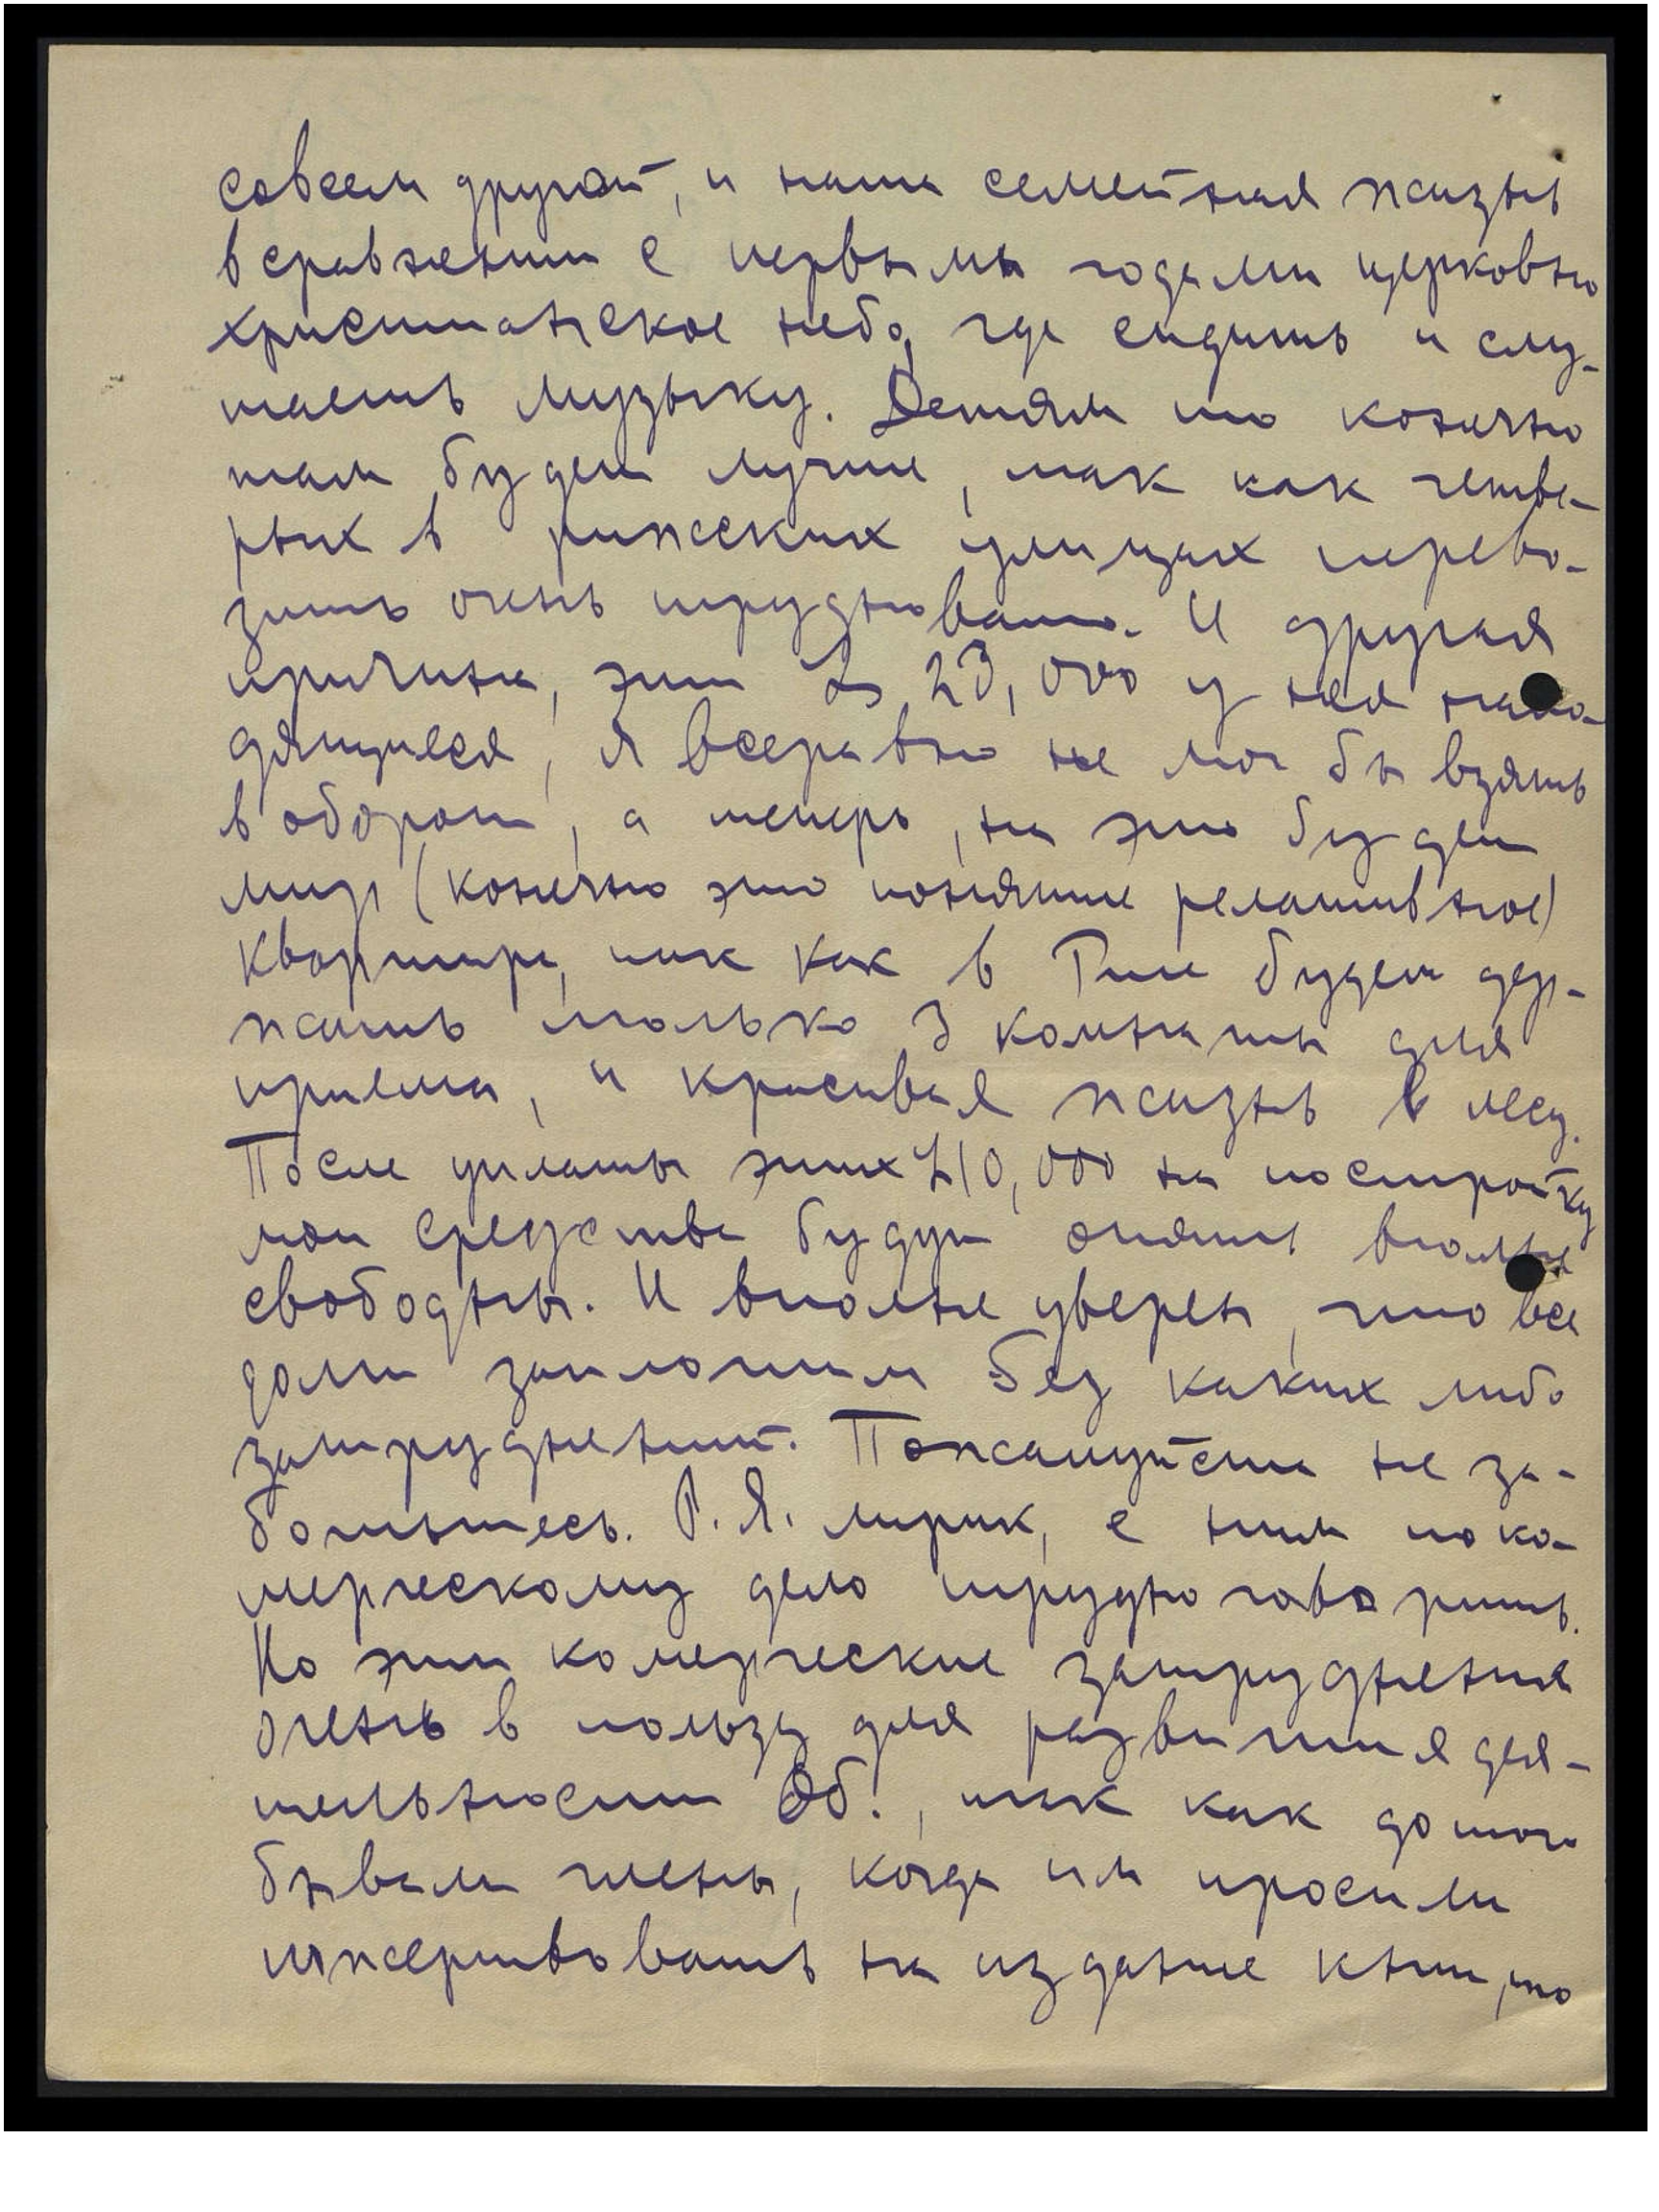 совсем другой, и наша семейная жизнь
в сравжении с первыми годами церковно
христианское небо, где сидишь и слу-
шаешь музыку. Детям то конечно
там будет лучше, так как четве-
рых в рижских улицах перево-
зить очень трудновато. И другая
причина, эти Ls 23,000 у нея нахо-
дящиеся, я всеравно не мог бы взять
в оборот, а теперь, на это будет
мир (конечно это понятие релативное)
квартира, так как в Риге будем дер-
жать только 3 комнаты для
приема, и красивая жизнь в лесу.
После уплаты этих L10,000 на постройку
мои средства будут опять вполне
свободны. И вполне уверен, что все
долги заплотим без каких либо
затруднений. Пожалуйста не за-
ботьтесь. Р. Я. лирик, с ним по ко-
мерческому дело трудно говорить.
Но эти комерческие затруднения
очень в пользу для развития дея-
тельности Об., так как до того
бывали члены, когда им просили
пожертвовать на издание книг, то